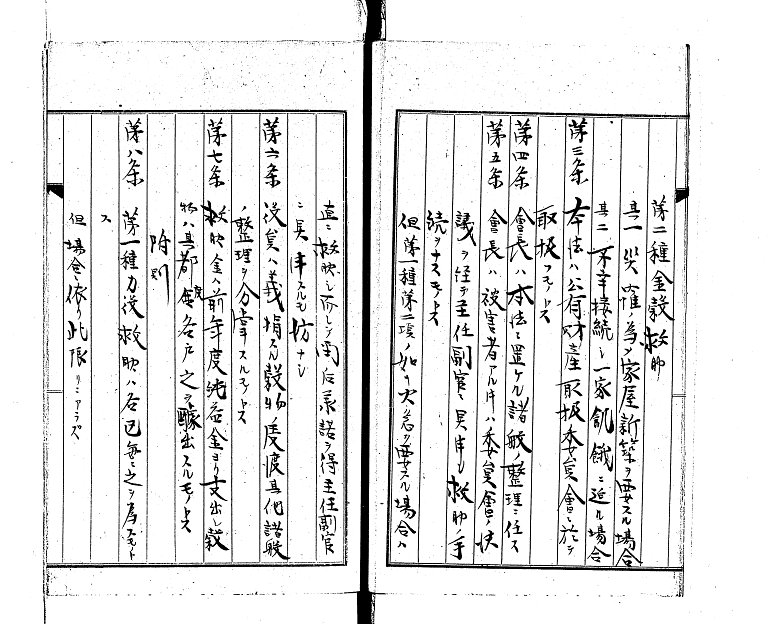 第二種金穀救助
其一災罹ノ為メ家屋新築ヲ要スル場合
其二不幸接続シ一家飢餓ニ近ル場合
第三条 本法ハ公有財産取扱委員會ニ於テ
取扱フモノトス
第四条 會長ハ本法ニ置ケル諸般ノ整理ニ任ス
第五条 會長ハ被害者アル片ハ委員會ノ決
議ヲ経テ主任副官ニ具申シ救助ノ手
続ヲナスモノトス
但第一種第二項ノ如キ火急ヲ要スル場合ハ
直ニ救助シ而シテ后承諾ヲ得主任副官
ニ具申スルモ妨ナシ
第六条 役員ハ義捐スル穀物ノ受渡其他諸般
ノ整理ヲ分掌スルモノトス
第七条 救助金ハ前年度純益金ヨリ支出シ穀
物ハ其都度各戸之ヲ醵出スルモノトス
附則
第八条 第一種力役救助ハ各巴毎ニ之ヲ為スモノト
ス
但場合ニ依リ此限リニアラズ